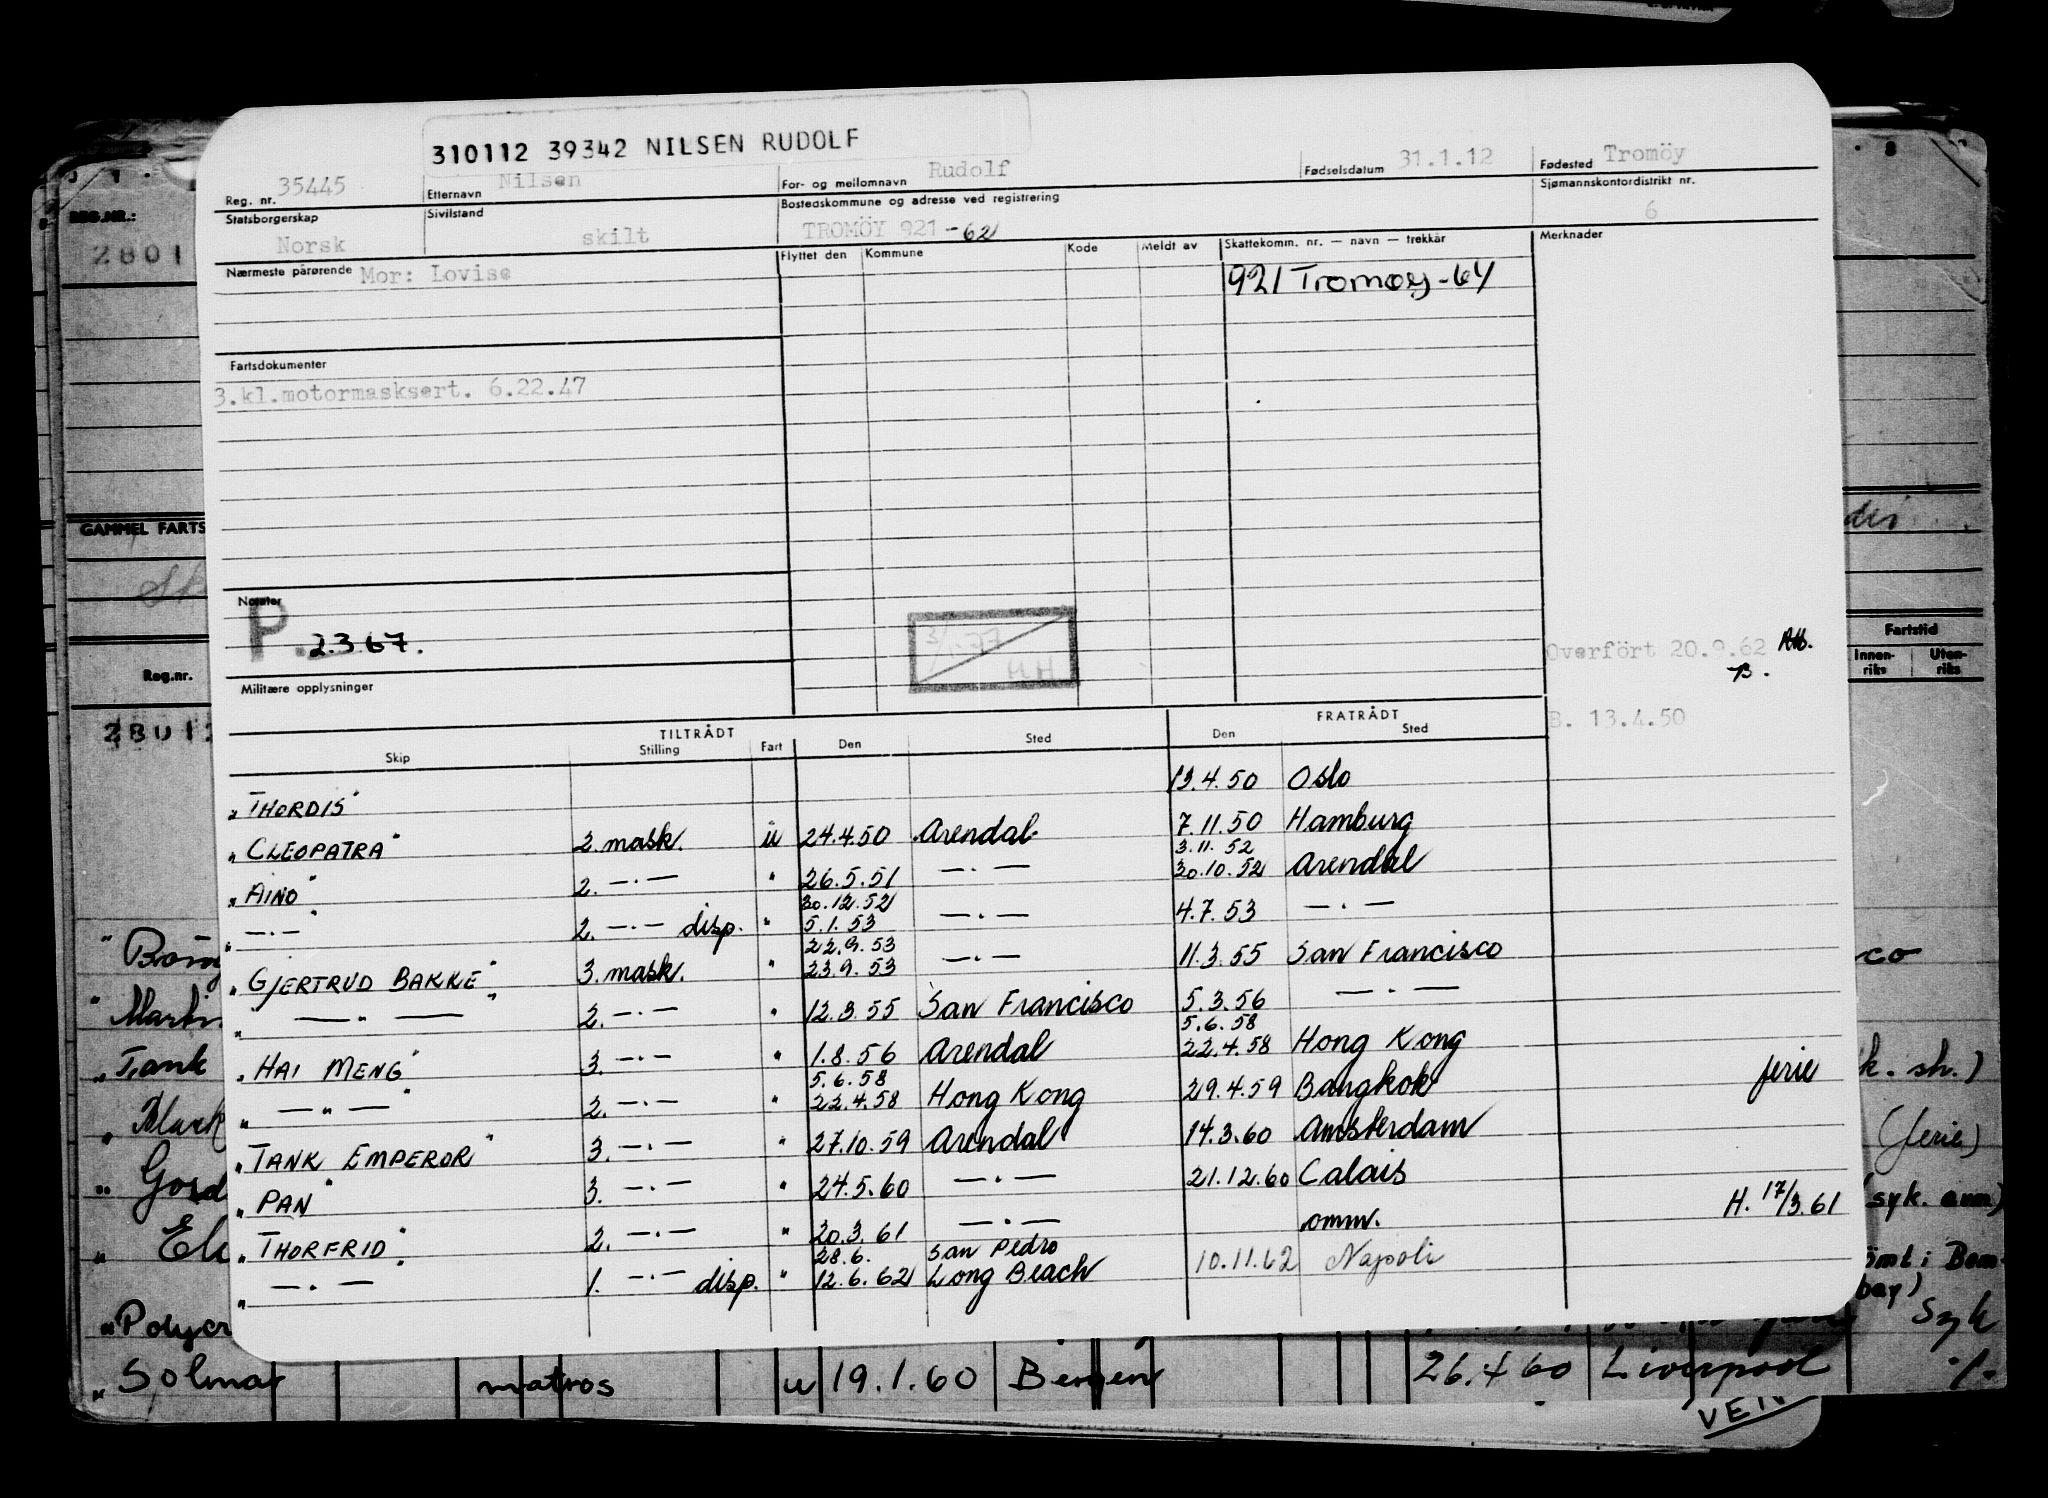 310112 39342 NILSEN RUDOLF
Reg. nr. 35445 Etternavn Nilsen For- og mellomnavn Rudolf Fødselsdatum 31.1.12 Fødested Tromöy
Statsborgerskap Norsk Sivilstand skilt Bostedskommune og adresse ved registrering TROMÖY 921-62 Sjømannskontordistrikt nr. 6
Nærmeste pårørende Mor: Lovise Flyttet den Kommune Kode Meldt av Skattekomm. nr. — navn — trekkår Merknader
921 Tromøy-64
Fartsdokumenter
3.kl.motormasksert. 6.22.47
Notater
P. 2.3 67.
3/ -77 H.H
Overfört 20.9.62
B.
Militære opplysninger
B. 13.4.50
TILTRÅDT FRATRÅDT
Skip Stilling Fart Den Sted Den Sted
"THORDIS" 13.4.50 Oslo
"CLEOPATRA" 2. mask. u 24.4.50 Arendal 7.11.50 Hamburg
3.11.52
"AINO" 2. —·— " 26.5.51 —·— 30.10.52 Arendal
30.12.52
"—·—" 2. —·— disp. " 5.1.53 —·— 4.7.53 —·—
22.9.53
"GJERTRUD BAKKE" 3. mask. " 23.9.53 —·— 11.3.55 San Francisco
"— " —" 2. —·— " 12.3.55 San Francisco 5.3.56 —·—
5.6.58
"HAI MENG" 3. —·— " 1.8.56 Arendal 22.4.58 Hong Kong
5.6.58
"— " —" 2. —·— " 22.4.58 Hong Kong 29.4.59 Bangkok ferie
"TANK EMPEROR" 3. —·— " 27.10.59 Arendal 14.3.60 Amsterdam
"PAN" 3. —·— " 24.5.60 —·— 21.12.60 Calais
"THORFRID" 2. —·— " 20.3.61 —·— omm. H. 17/3.61
28.6. San Pedro
"—·—" 1. —·— disp. " 12.6.62 Long Beach 10.11.62 Napoli
REG.NR.:
2801
GAMMEL FARTS
Reg.nr.
Fartstid
Innen-riks Uten-riks
co
Tank
k. sh.)
(ferie)
syk. anm.)
ömt i Bom-
bay)
Syk
"Solmar matros u 19.1.60 Bergen 26.4 60 Liverpool ·/·